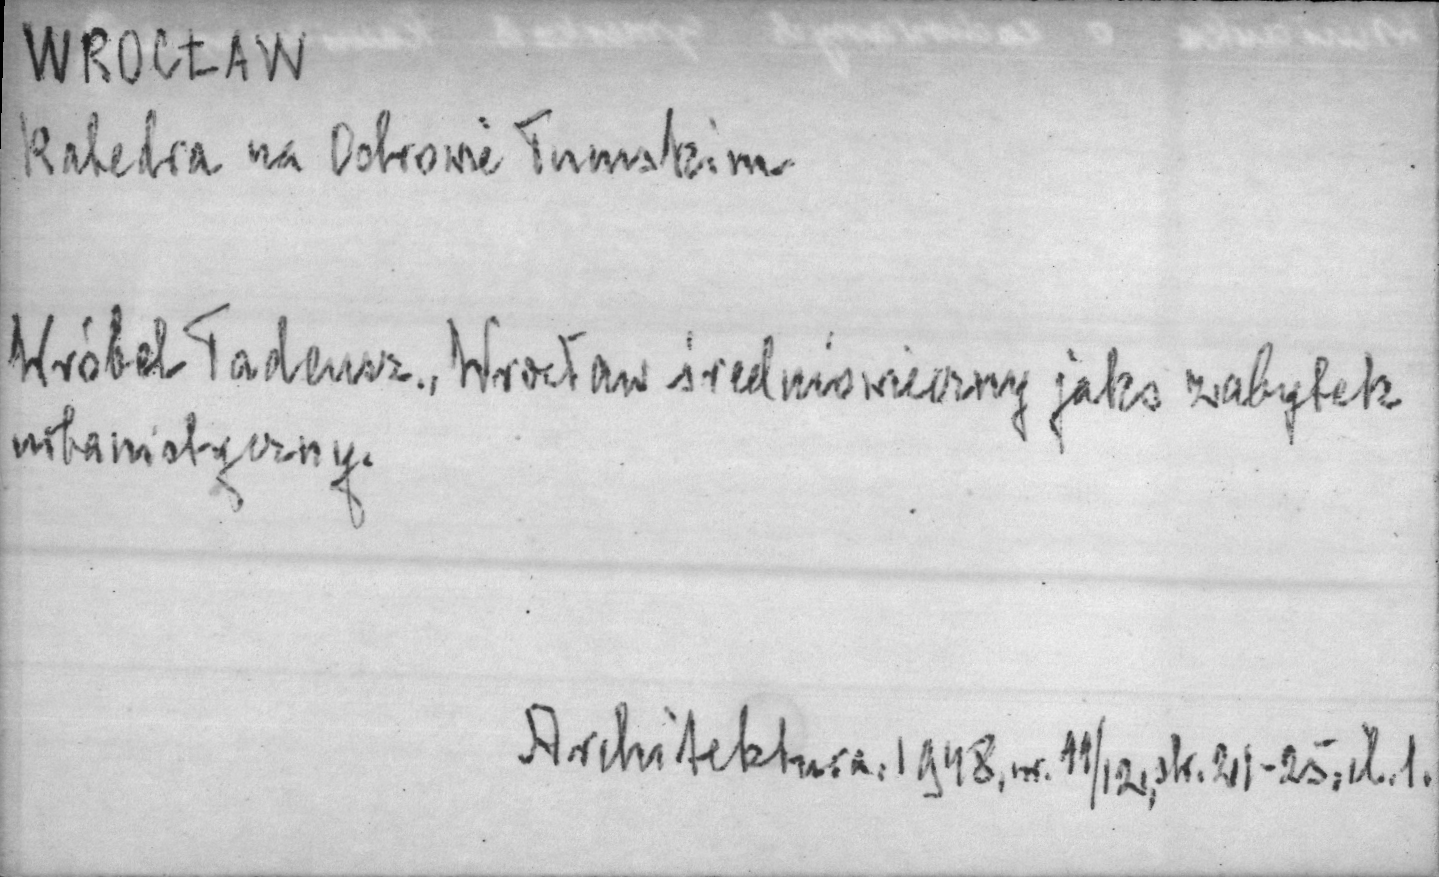 WROCŁAW
Katedra na Ostrowie Tumskim
Wróbel Tadeusz., Wrocław średniowieczny jako zabytek
urbanistyczny.
Architektura. 1948, nr. 11/12, str. 21-25, il. 1.